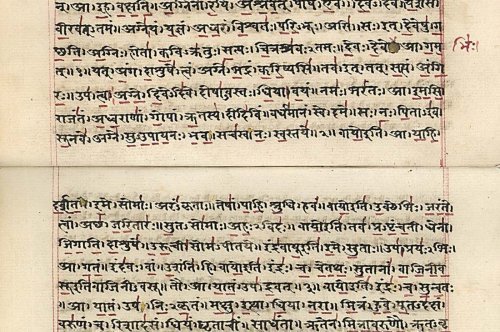 आ । इह । वक्षति ॥ अग्निना । रयिं । अश्नवत् । पोषं । एव । दिवेऽदिवे । यशसं ।
वीरवत्ऽतमं ॥ अग्ने । यं । यज्ञं । अध्वरं । विश्वतः । परिऽभूः । असि । सः । इत् । देवेषु । ग
च्छति ॥ होता । कविऽक्रतुः । सत्यः । चित्रश्रवःऽतमः । देवः । देवे आ । गम
भिः।
त् ॥ १ ॥ यत् । अंग । दाशुषे । त्वं । अग्ने । भद्रं । करिष्यसि । तव । इत् । तत् । सत्यं । अंगि
रः ॥ उप । त्वा । अग्ने । दिवेऽदिवे । दोषाऽवस्तः । धिया । वयं । नमः । भरंतः । आ । इमसि ॥
राजंतं । अध्वराणां । गोपां । ऋतस्य । दीदिविं । वर्धमानं । स्वे । दमे ॥ सः । नः । पिताऽइव ।
सूनवे । अग्ने । सुऽउपायनः । भव । सचस्व । नः । स्वस्तये ॥ २ ॥ वायो इति । आ । याहि ।
दर्शत । इमे । सोमाः । अरंऽकृताः । तेषां । पाहि । श्रुधि । हवं ॥ वायो इति । उक्थेभिः । जरंते ।
त्वां । अच्छ । जरितारः । सुतऽसोमाः । अहःऽविदः ॥ वायो इति । तव । प्रऽपृंचती । धेना ।
जिगाति । दाशुषे । उरूची । सोमऽपीतये ॥ इंद्रवायू इति । इमे । सुताः । उप । प्रयःऽभिः ।
आ । गतं । इंदवः । वां । उशंति । हि ॥ वायो इति । इंद्रः । च । चेतथः । सुतानां । वाजिनीव
सू इति वाजिनीऽवसू । तौ । आ । यातं । उप । द्रवत् ॥ ३ ॥ वायो इति । इंद्रः । च । सुन्वतः
। आ । यातं । उप । निःऽकृतं । मक्षु । इत्था । धिया । नरा ॥ मित्रं । हुवे । पूतऽदक्षं ।
वरुणं । च । रिशादसं । धियं । घृताचीं । साधंता ॥ ऋतेन । मित्रावरुणौ । ऋतऽवृ